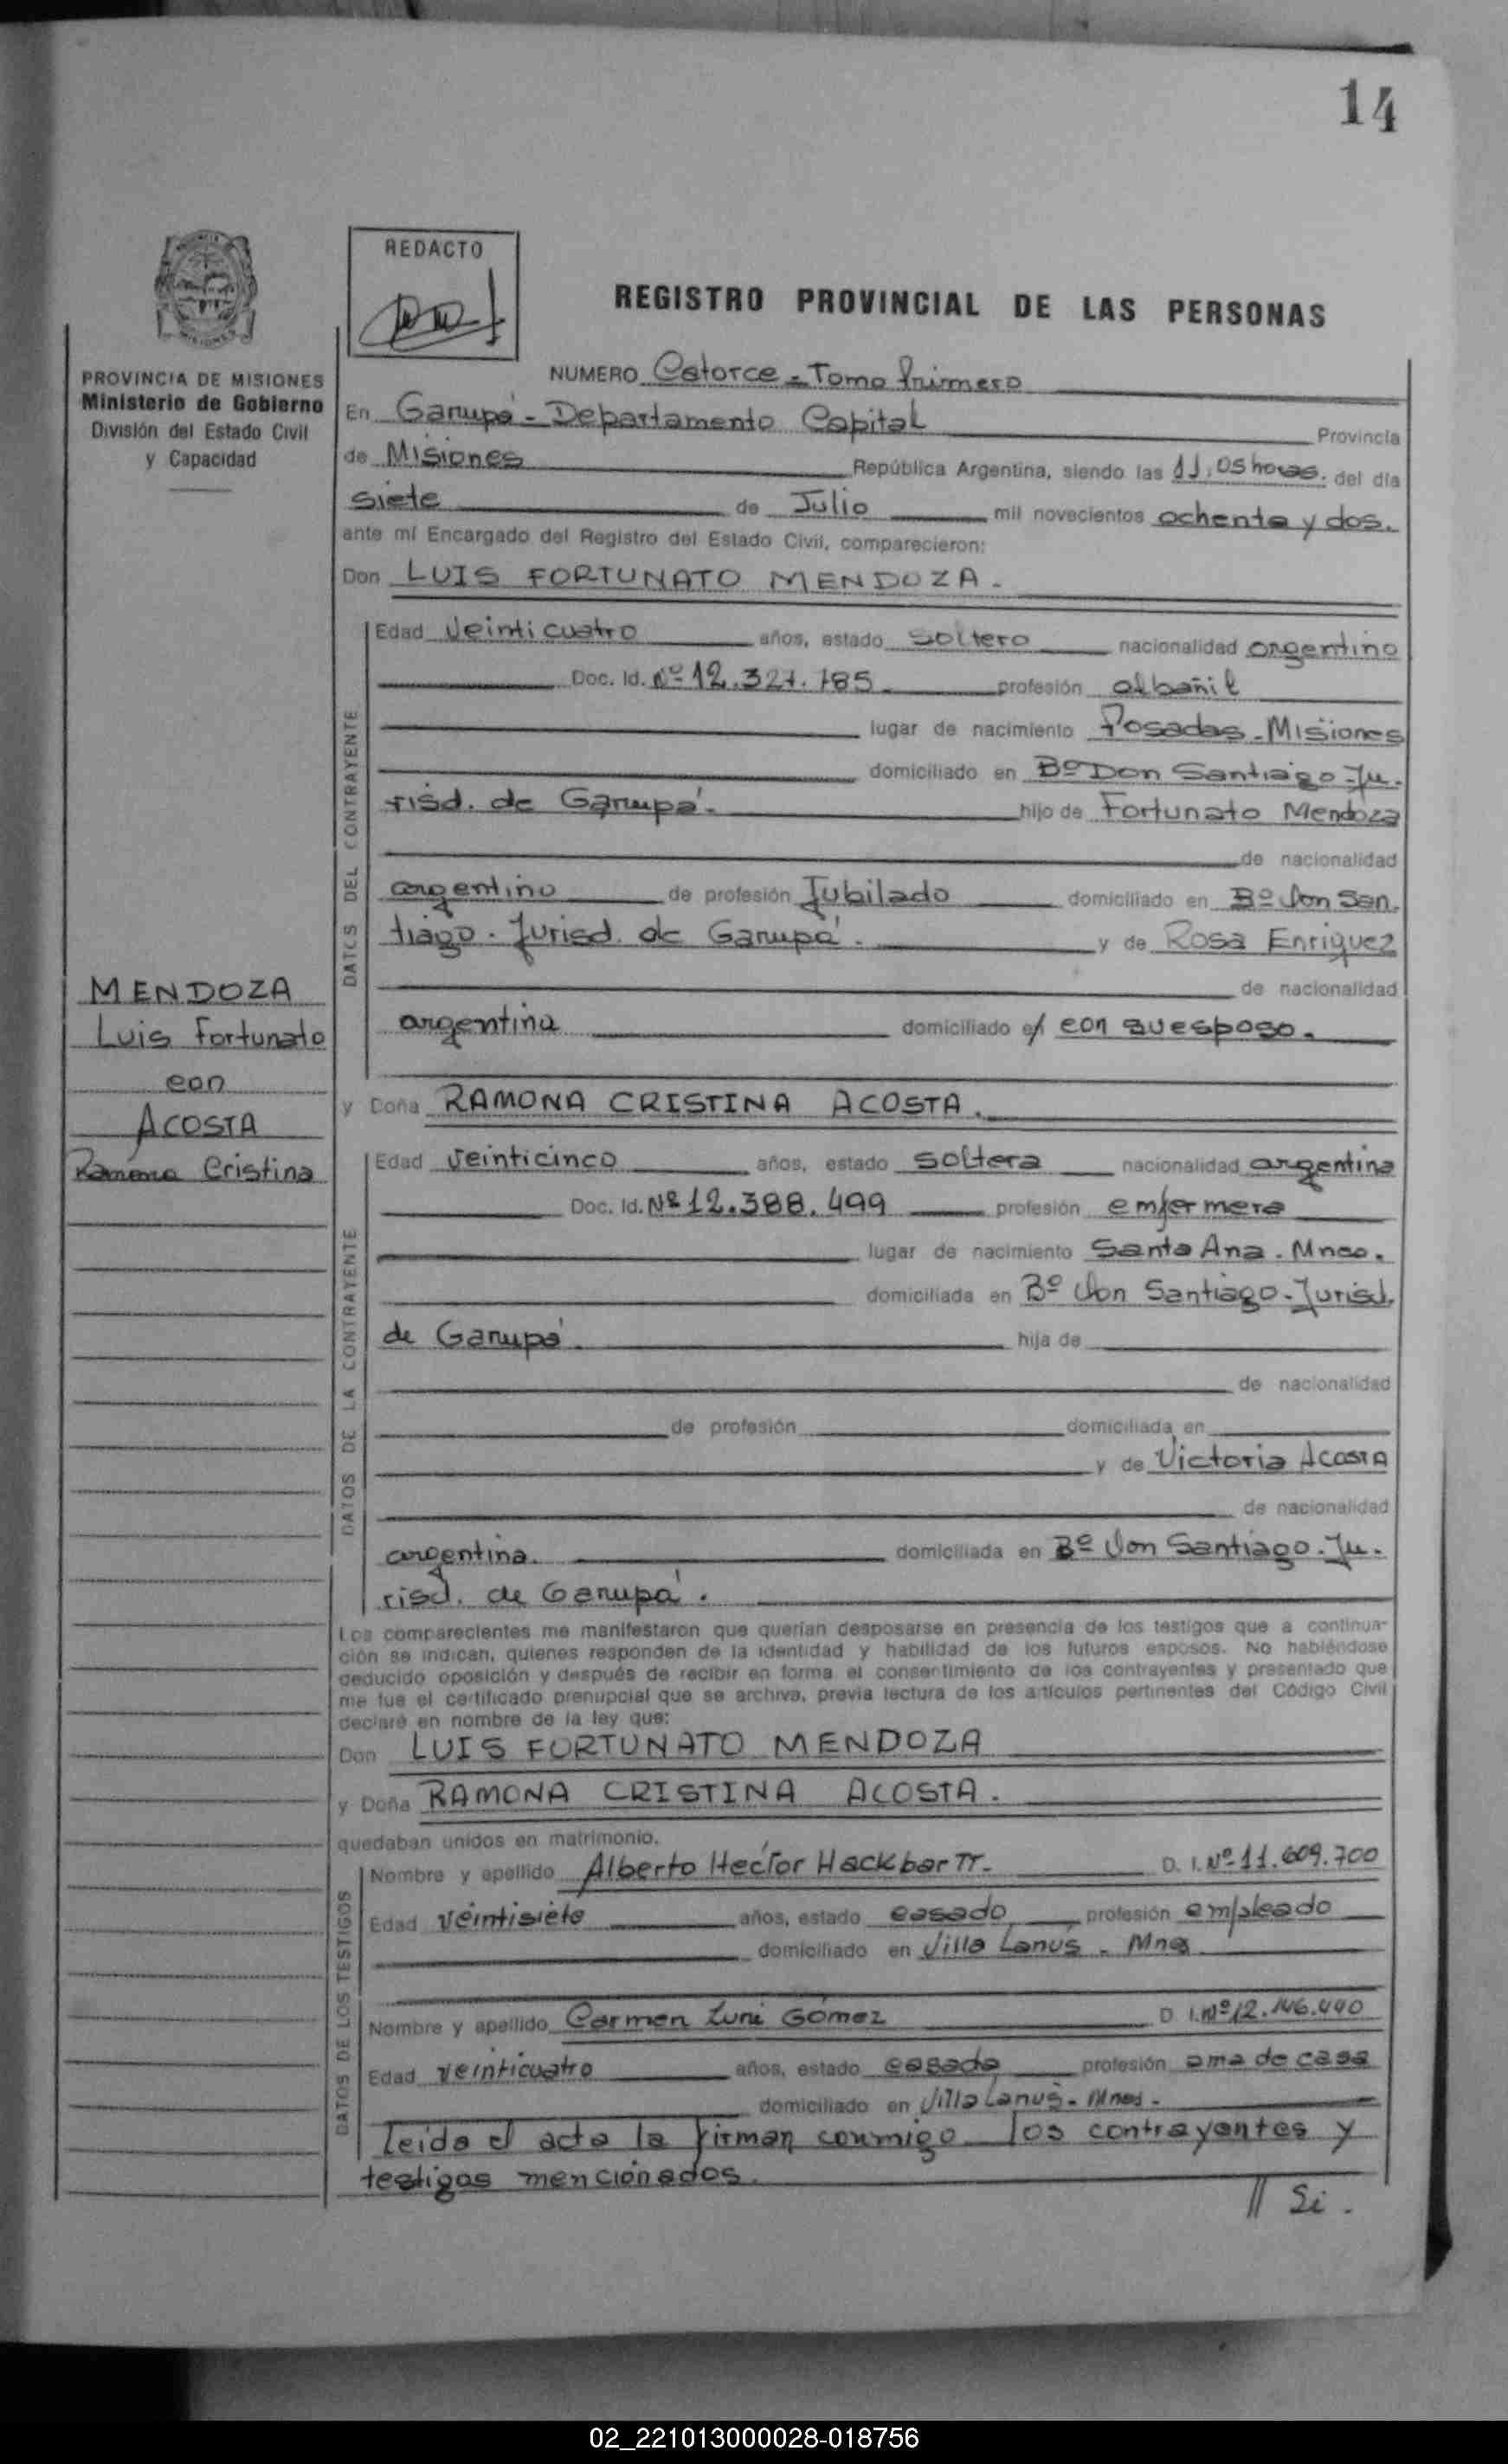 14
REDACTO
REGISTRO PROVINCIAL DE LAS PERSONAS
PROVINCIA DE MISIONES
Ministerio de Gobierno
División del Estado Civil
y Capacidad
NUMERO Catorce - Tomo Primero
En Garupá - Departamento Capital Provincia
de Misiones República Argentina, siendo las 11,05 horas. del día
siete de Julio mil novecientos ochenta y dos.
ante mí Encargado del Registro del Estado Civil, comparecieron:
Don LUIS FORTUNATO MENDOZA.
DATOS DEL CONTRAYENTE
Edad Veinticuatro años, estado soltero nacionalidad argentino
Doc. Id. Nº 12.321.785 profesión albañil
lugar de nacimiento Posadas - Misiones
domiciliado en Bº Don Santiago - Ju.
risd. de Garupá. hijo de Fortunato Mendoza
de nacionalidad
argentino de profesión Jubilado domiciliado en Bº Don San.
tiago. Jurisd. de Garupá. y de Rosa Enriquez
de nacionalidad
argentina domiciliado e/ con su esposo.
MENDOZA
Luis Fortunato
con
ACOSTA
Ramona Cristina
y Doña RAMONA CRISTINA ACOSTA.
DATOS DE LA CONTRAYENTE
Edad Veinticinco años, estado soltera nacionalidad argentina
Doc. Id. Nº 12.388.499 profesión enfermera
lugar de nacimiento Santa Ana. Mnes.
domiciliada en Bº Don Santiago - Jurisd.
de Garupá. hija de
de nacionalidad
de profesión domiciliada en
y de Victoria Acosta
de nacionalidad
argentina. domiciliada en Bº Don Santiago. Ju.
risd. de Garupá.
Los comparecientes me manifestaron que querían desposarse en presencia de los testigos que a continua-
ción se indican, quienes responden de la identidad y habilidad de los futuros esposos. No habiéndose
deducido oposición y después de recibir en forma el consentimiento de los contrayentes y presentado que
me fue el certificado prenupcial que se archiva, previa lectura de los artículos pertinentes del Código Civil
declaré en nombre de la ley que:
Don LUIS FORTUNATO MENDOZA
y Doña RAMONA CRISTINA ACOSTA.
quedaban unidos en matrimonio.
DATOS DE LOS TESTIGOS
Nombre y apellido Alberto Hector Hackbartt. D. I. Nº 11.609.700
Edad veintisiete años, estado casado profesión empleado
domiciliado en Villa Lanús - Mnes
Nombre y apellido Carmen Gómez D. I. Nº 12.146.440
Edad veinticuatro años, estado casada profesión ama de casa
domiciliado en Villa Lanús - Mnes.
Leída el acta la firman conmigo los contrayentes y
testigos mencionados.
// Si.
02_221013000028-018756